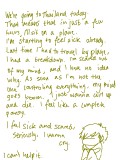 We're going to Thailand today.
That means that in just a few
hours, I'll be on a plane.
I'm starting to feel sick already.
Last time I had to travel by plane,
I had a breakdown. I'm scared out
of my mind, and I have no idea
why. As soon as I'm not the
one controlling everything, my head
goes insane. I just wanna curl up
and die. I feel like a complete
pansy.
I feel sick and scared.
Seriously. I wanna
cry.
I can't help it.